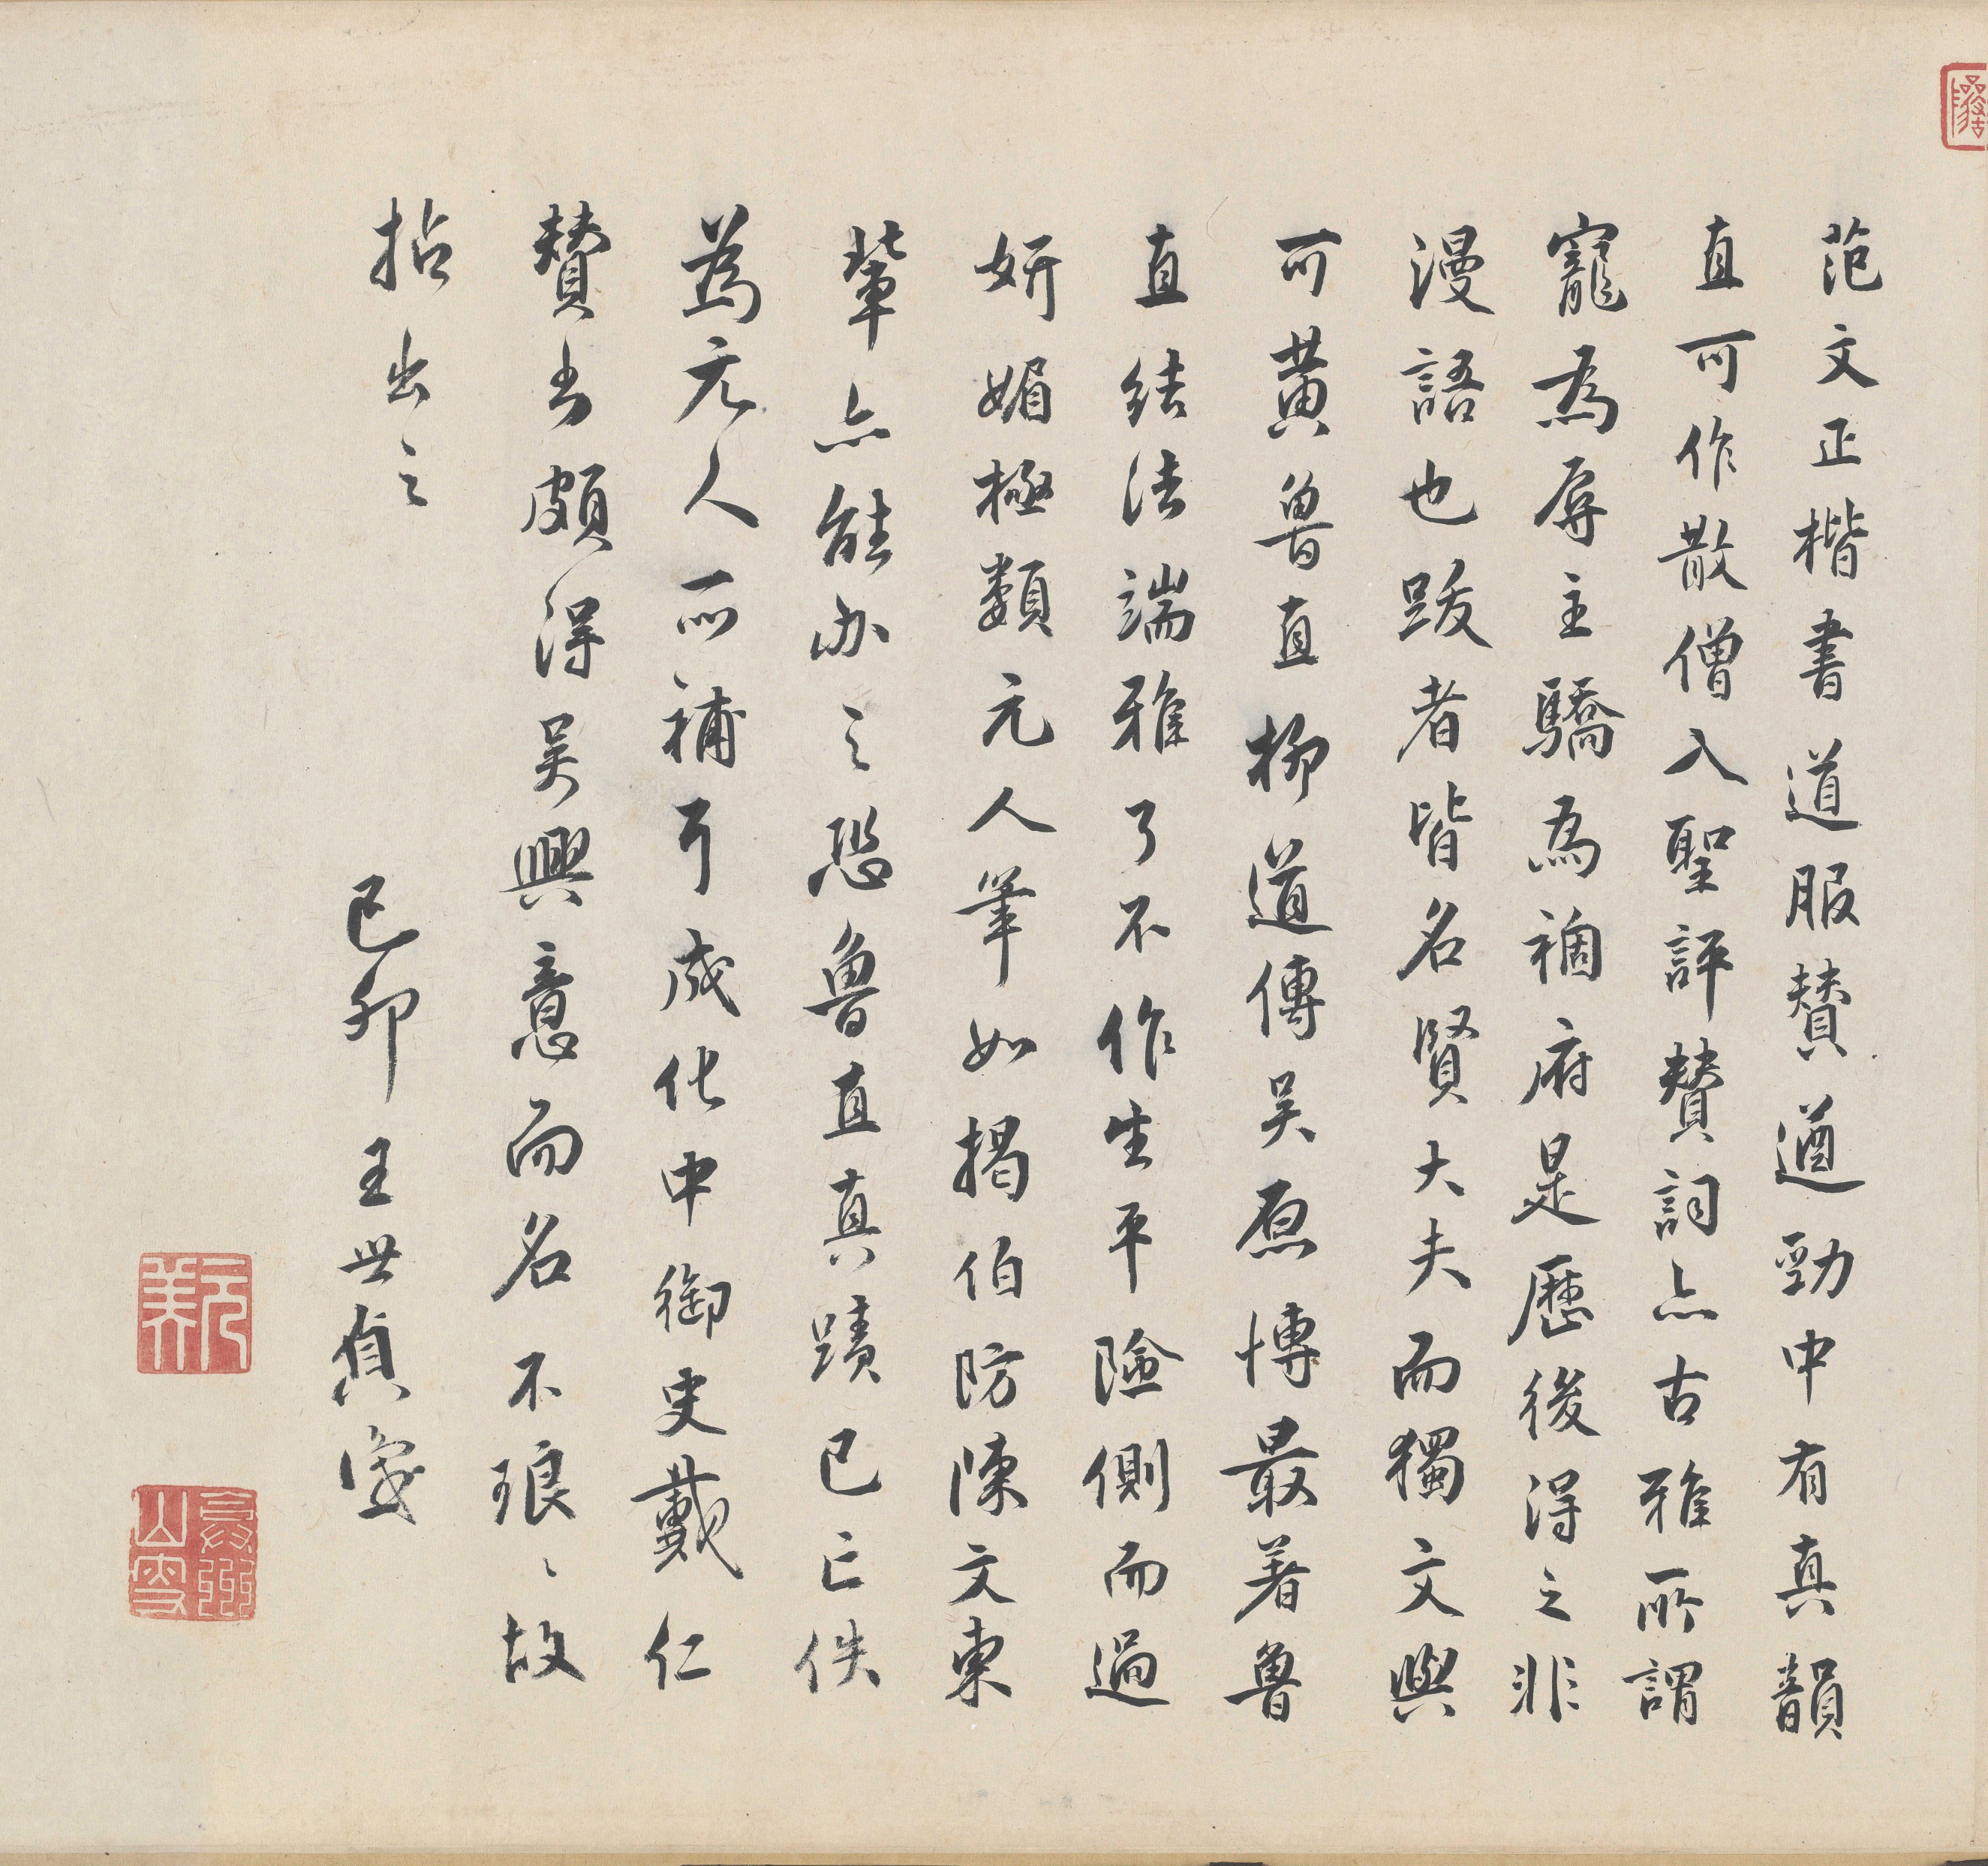 范文正楷書道服贊遒勁中有真韻
直可作散僧入聖評贊詞亦古雅所謂
寵為辱主驕為禍府是歷後得之非
漫語也跋者皆名賢大夫而獨文與
可黃魯直柳道傳吳原博最著魯
直結法端雅了不作生平險側而過
妍媚極類元人筆如揭伯防陳文東
輩亦能办之恐魯直真蹟已亡佚
為元人所補耳成化中御史戴仁
贊書頗得吳興意而名不琅〻故
拈出之
己卯 王世貞識
元美